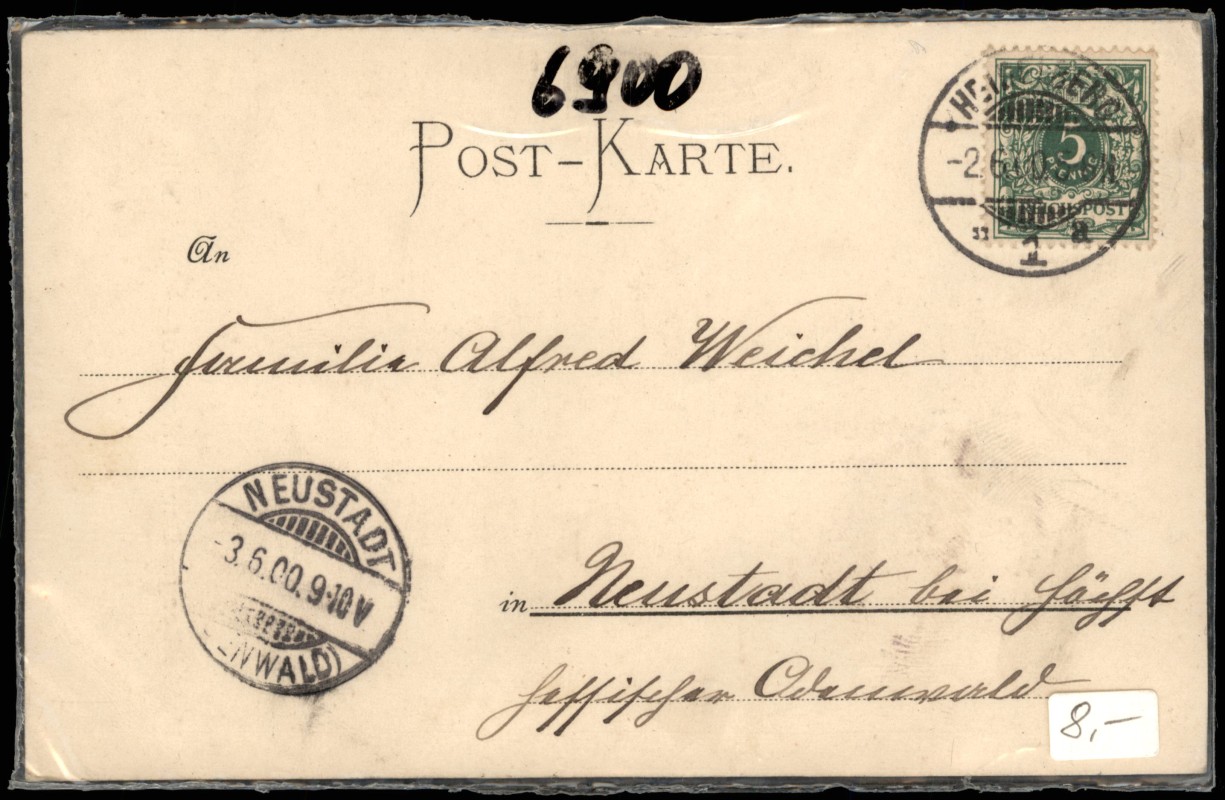 6900
POST-KARTE.
HEIDELBERG
-2.6.00.
5
PFENNIG
REICHSPOST
1 a
An
Familie Alfred Weichel
NEUSTADT
-3.6.00.9-10V
(ODENWALD)
in Neustadt bei Höchst
hessischer Odenwald
8,-